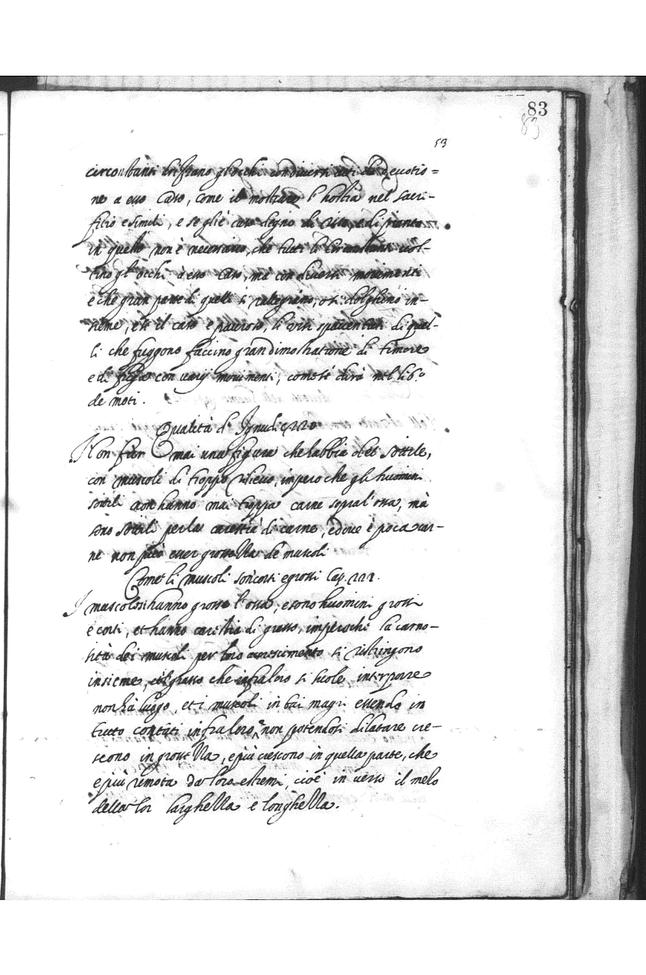 83
83
53
circonstanti drizzano gl'occhi con diversi atti di devotio=
ne a esso caso, come il mostrare l'hostia nel sacri-
fitio e simili, e se gl'è caso degno di riso, o di pianto
in questo non è necessario, che tutti li circonstanti vol-
tino gl'occhi a esso caso, mà con diversi movimenti
e che gran parte di quelli si rallegrino, o si dolghino in-
sieme, et se il caso è pauroso, li visi spaventati di quel-
li che fuggono faccino gran dimostratione di timore
e di fuga con varij movimenti, come si dirà nel lib.º
de moti.
Qualità d'Ignudi
Non far mai una figura che habbia del sottile,
con muscoli di troppo rilievo, impero che gli huomini
sottili non hanno mai troppa carne sopra l'ossa, mà
sono sottili per la carestia di carne, e dove è poca car-
ne non può esser grossezza de muscoli
Come li muscoli son corti e grossi Cap.
I muscolosi hanno grosse l'ossa, e sono huomini grossi
e corti, et hanno carestia di grasso, imperoche la carno-
sità dei muscoli per loro accrescimento si ristringono
insieme, e il grasso che infra loro si suole interporre
non hà luogo, et i muscoli in tai magri essendo in
tutto contati infra loro, e non potendosi dilatare cre-
scono in grossezza, e più crescono in quella parte, che
e più remota da loro estremi, cioè in verso il mezo
della lor larghezza e longhezza.